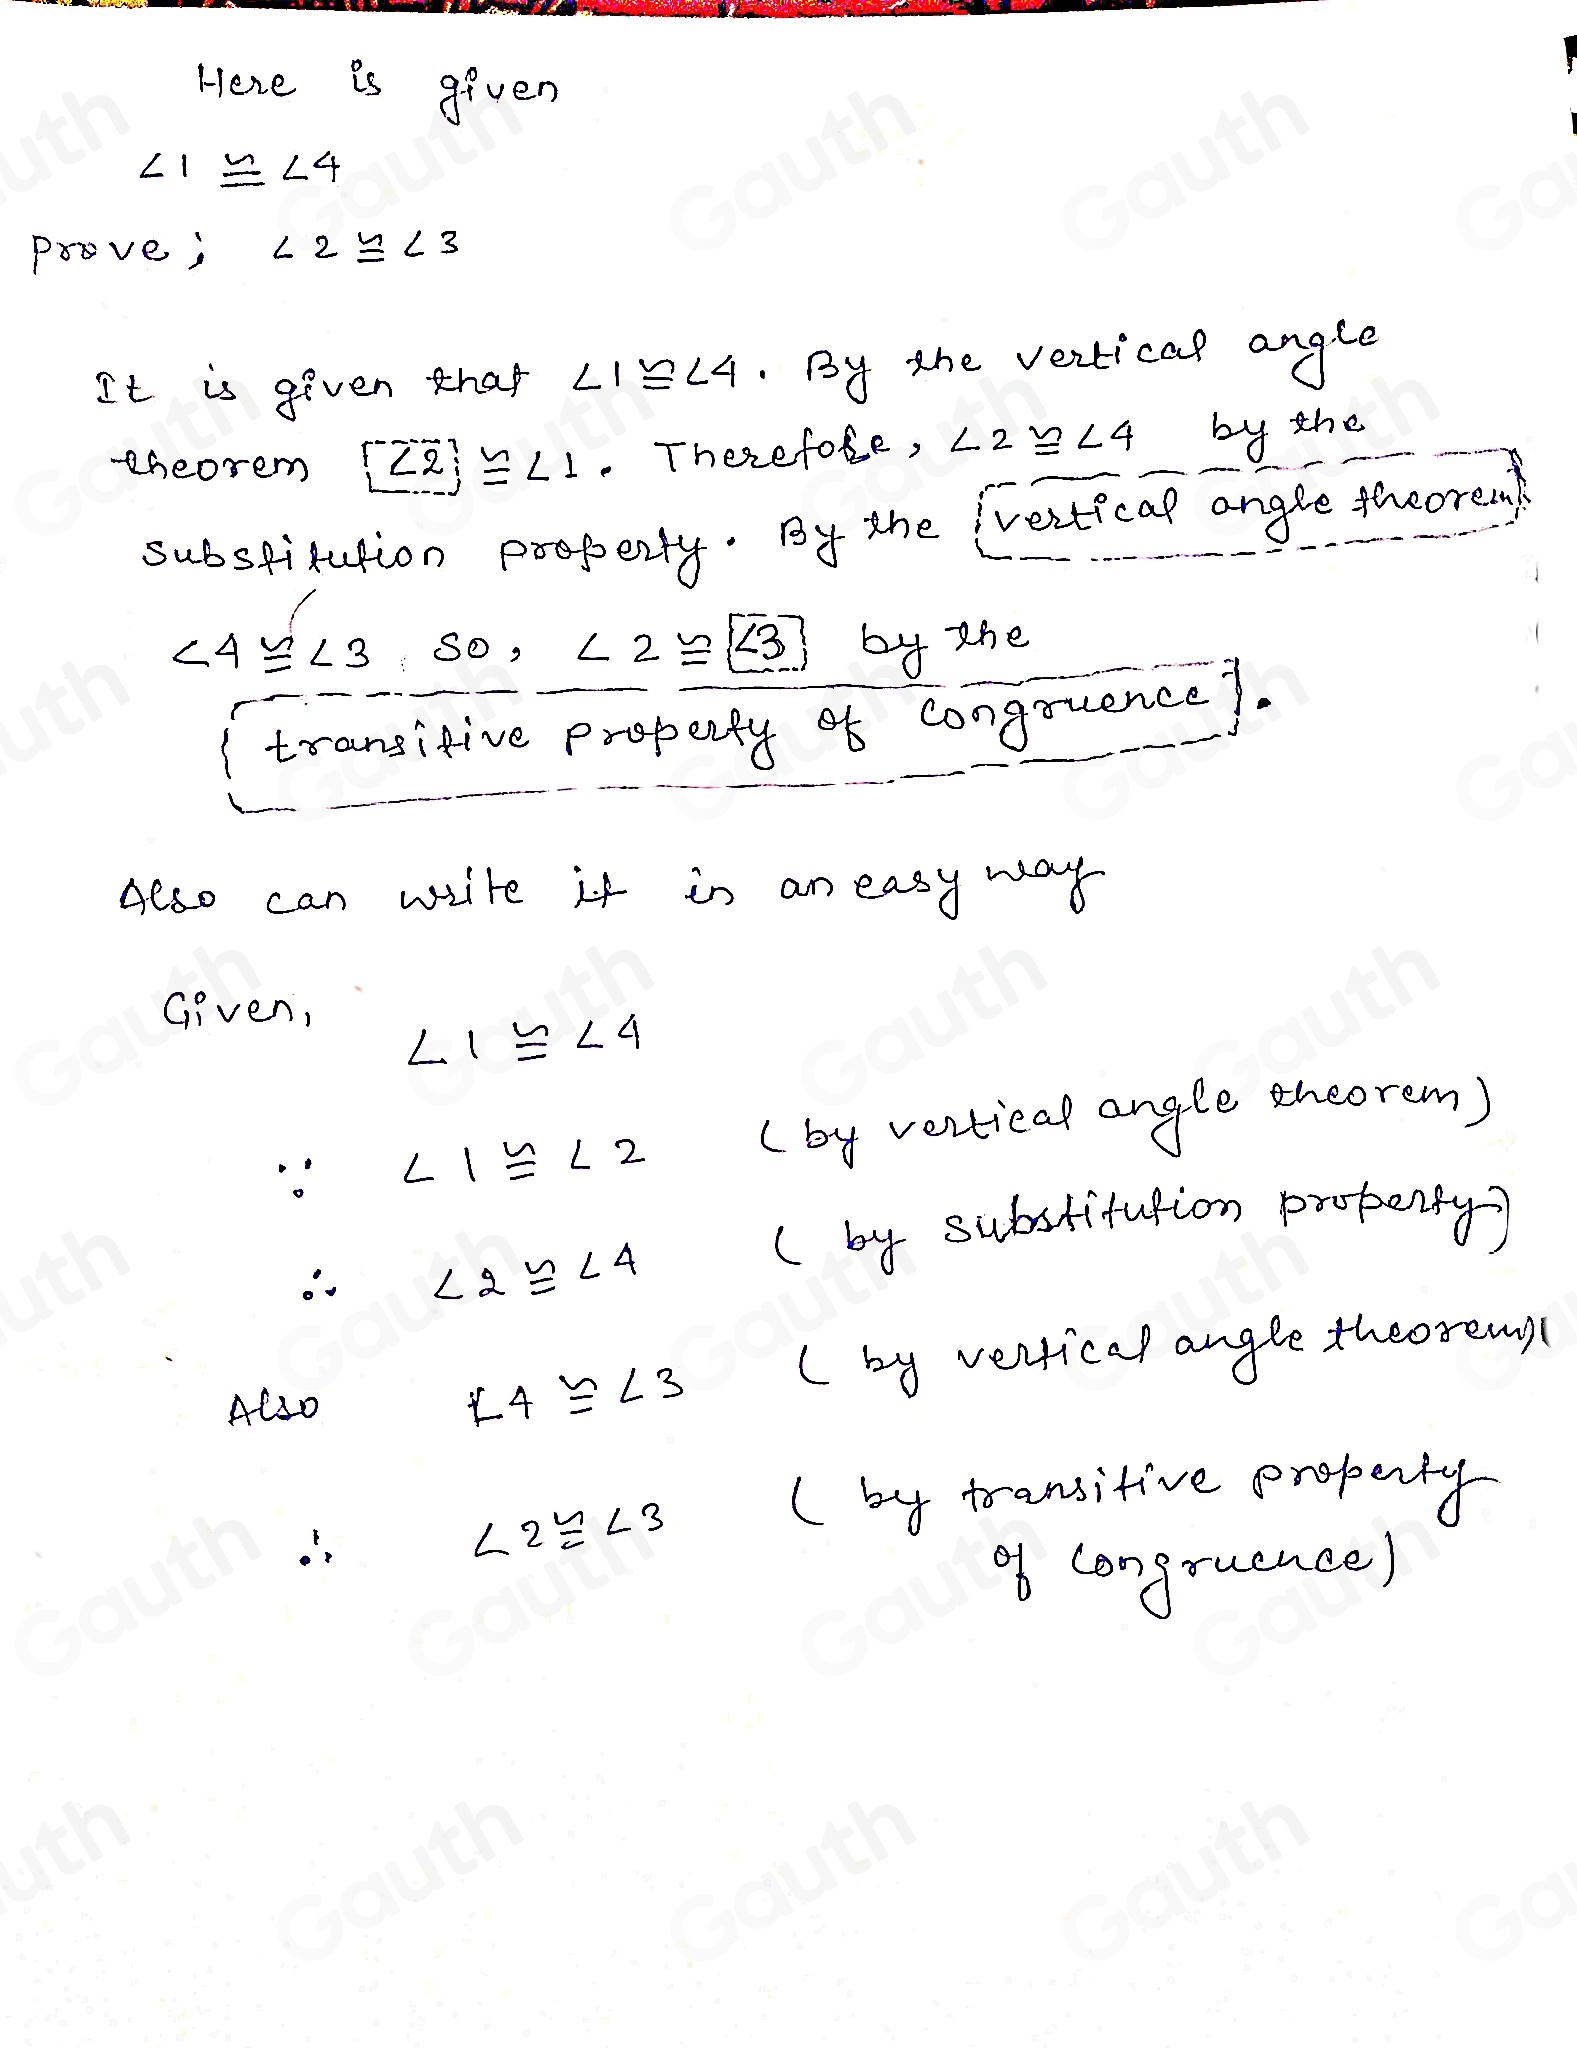 Here is given
∠1 ≅ ∠4
prove; ∠2 ≅ ∠3
It is given that ∠1≅∠4. By the vertical angle
theorem [∠2] ≅ ∠1. Therefore, ∠2 ≅ ∠4 by the
substitution property. By the [vertical angle theorem]
∠4 ≅ ∠3 so, ∠2 ≅ [∠3] by the
[transitive property of congruence].
Also can write it in an easy way
Given,
∠1 ≅ ∠4
∵ ∠1 ≅ ∠2 (by vertical angle theorem)
∴ ∠2 ≅ ∠4 (by substitution property)
Also ∠4 ≅ ∠3 (by vertical angle theorem)
∴ ∠2 ≅ ∠3 (by transitive property
of congruence)